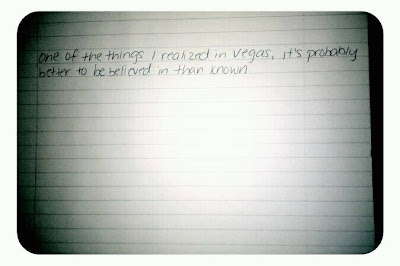 One of the things I realized in Vegas, it's probably
better to be believed in than known